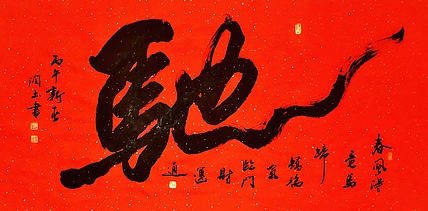 馳
春風得
意馬
蹄
福
氣
臨門
財
運
通
丙午新春
書